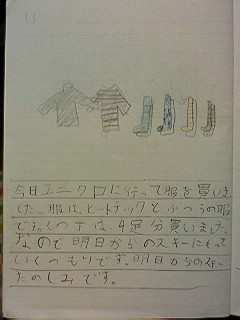 今日ユニクロに行って服を買いま
した。服は、ヒートテックとふつうの服
です。くつ下は、4足分買いました。
なので明日からのスキーにもって
いくつもりです。明日からのスキー
たのしみです。